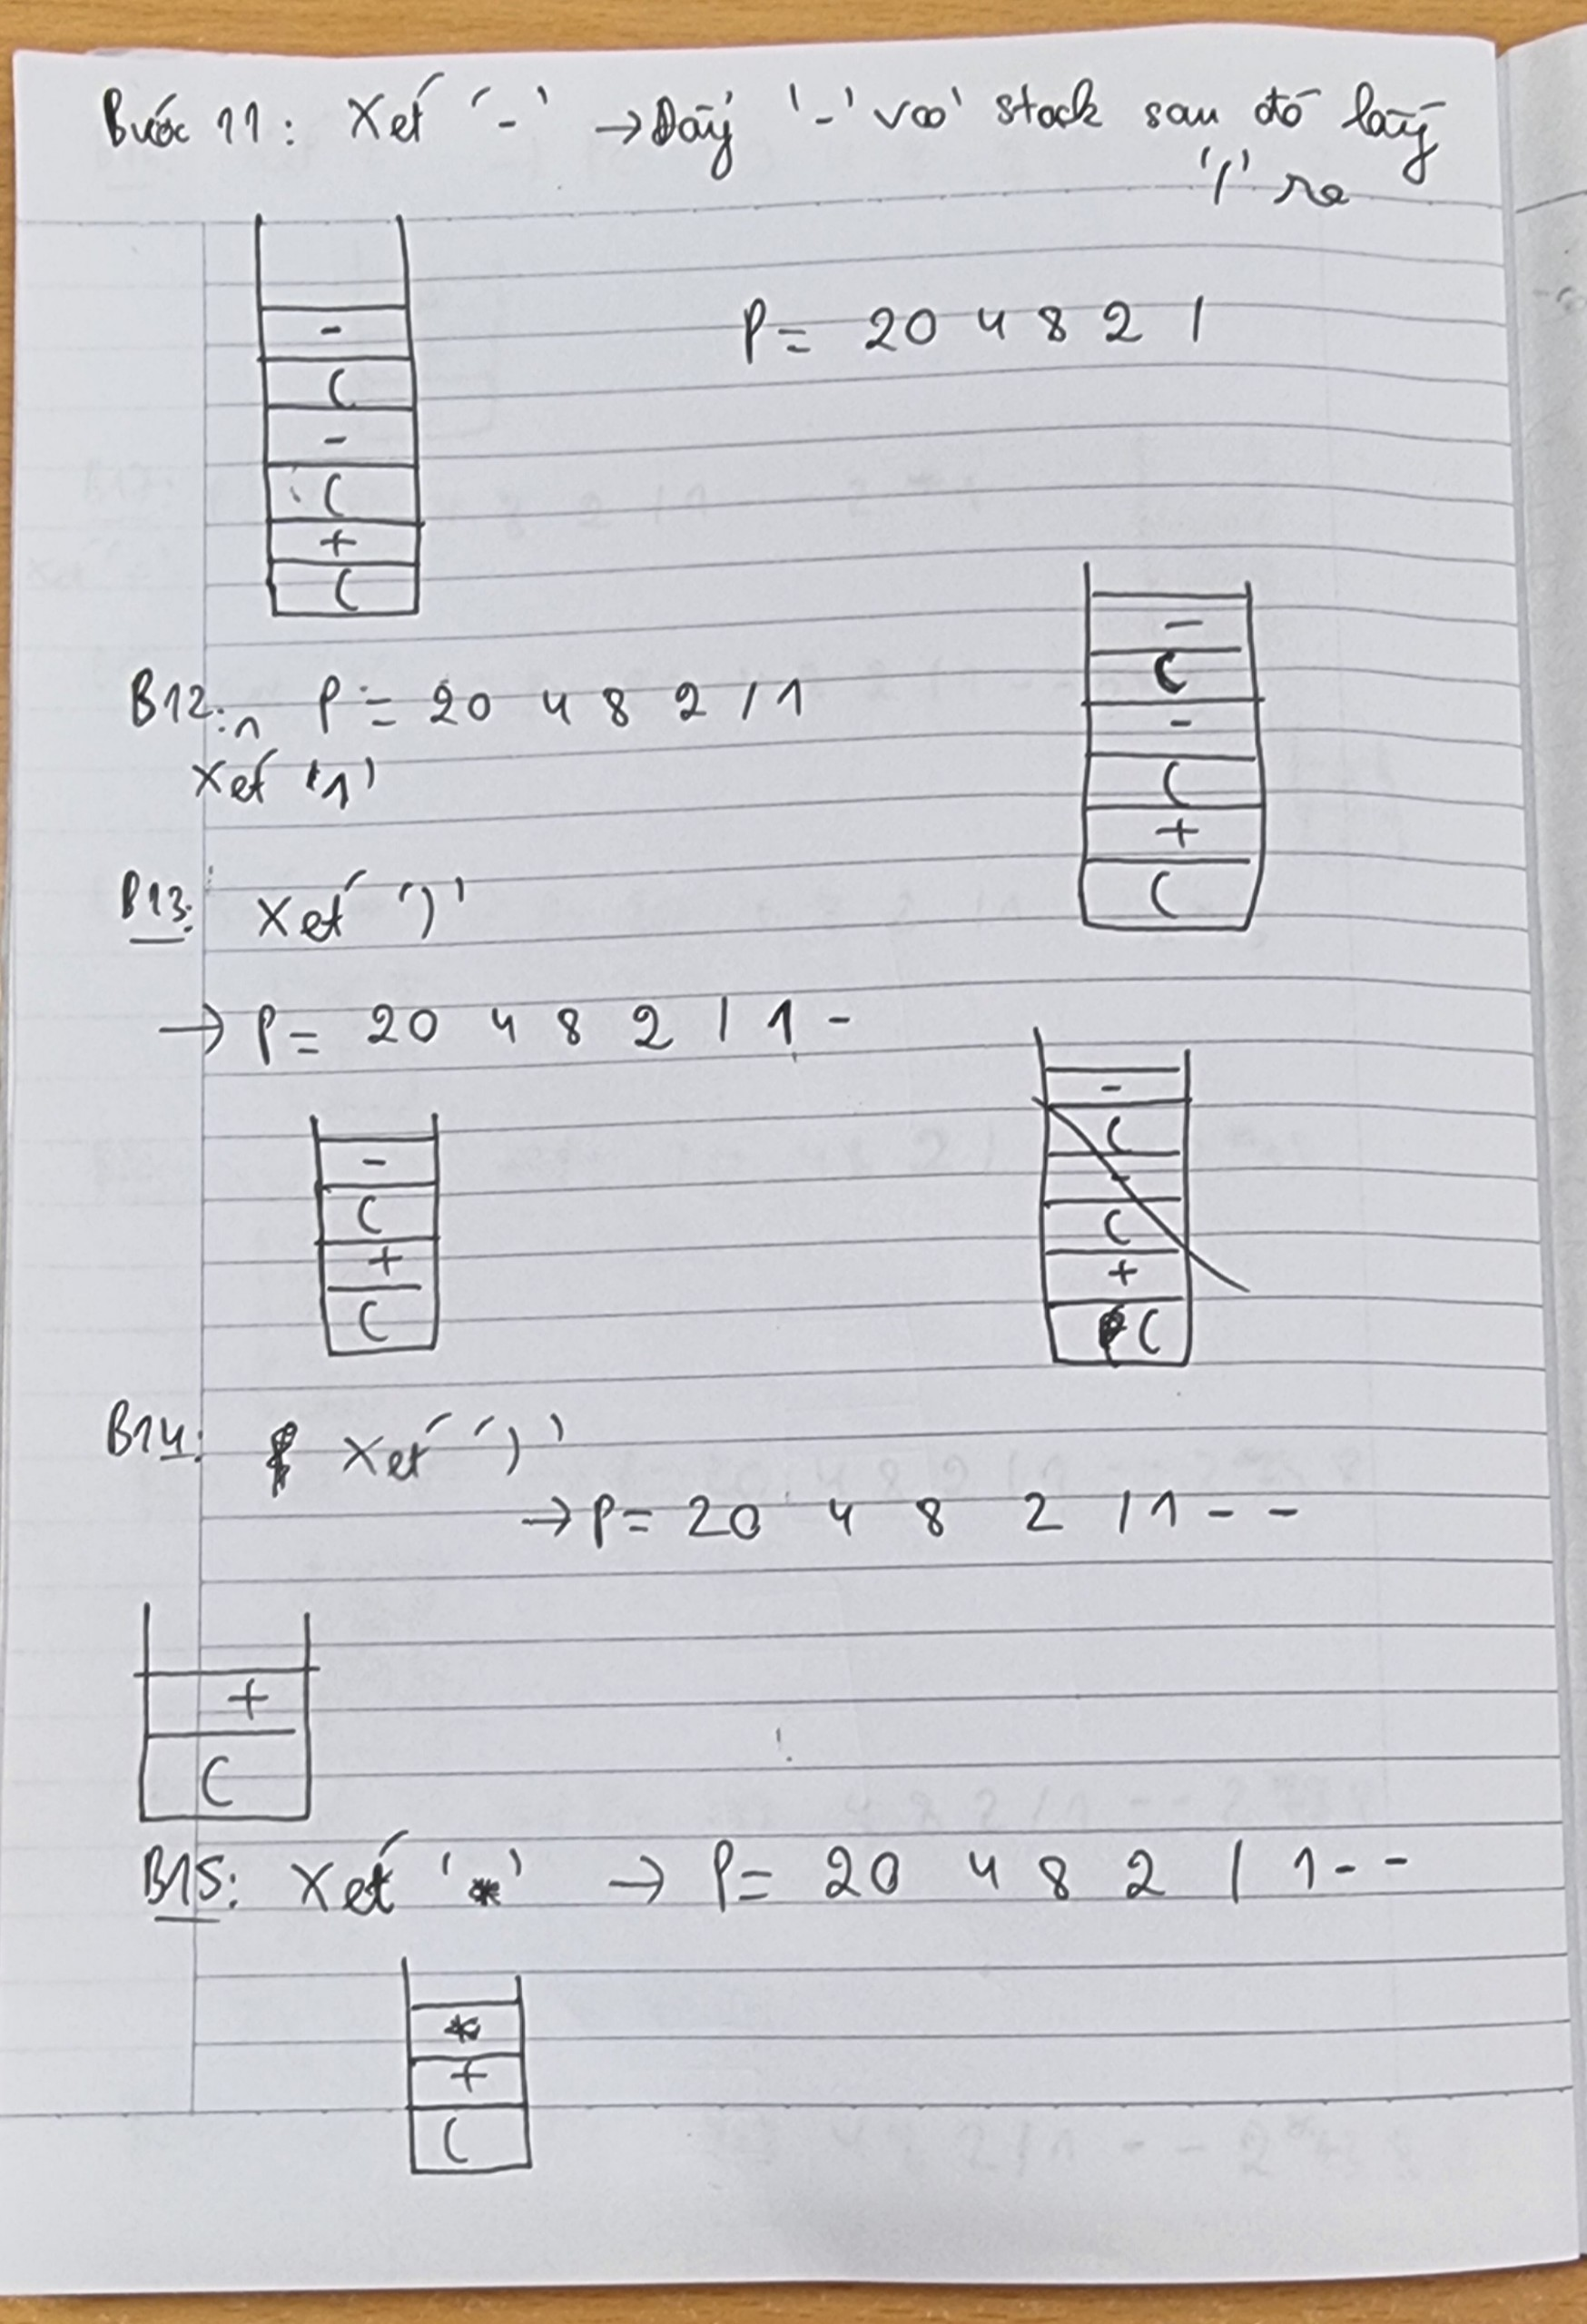 Bước 11: Xét '-' → Đẩy '-' vào stack sau đó lấy
'/' ra
-
(
-
(
+
(
P = 20 4 8 2 /
B12: P = 20 4 8 2 / 1
Xét '1'
-
(
-
(
+
(
B13: Xét ')'
→ P = 20 4 8 2 / 1 -
-
(
+
(
-
(
-
(
+
(
B14: Xét ')'
→ P = 20 4 8 2 / 1 - -
+
(
B15: Xét '*' → P = 20 4 8 2 / 1 - -
*
+
(